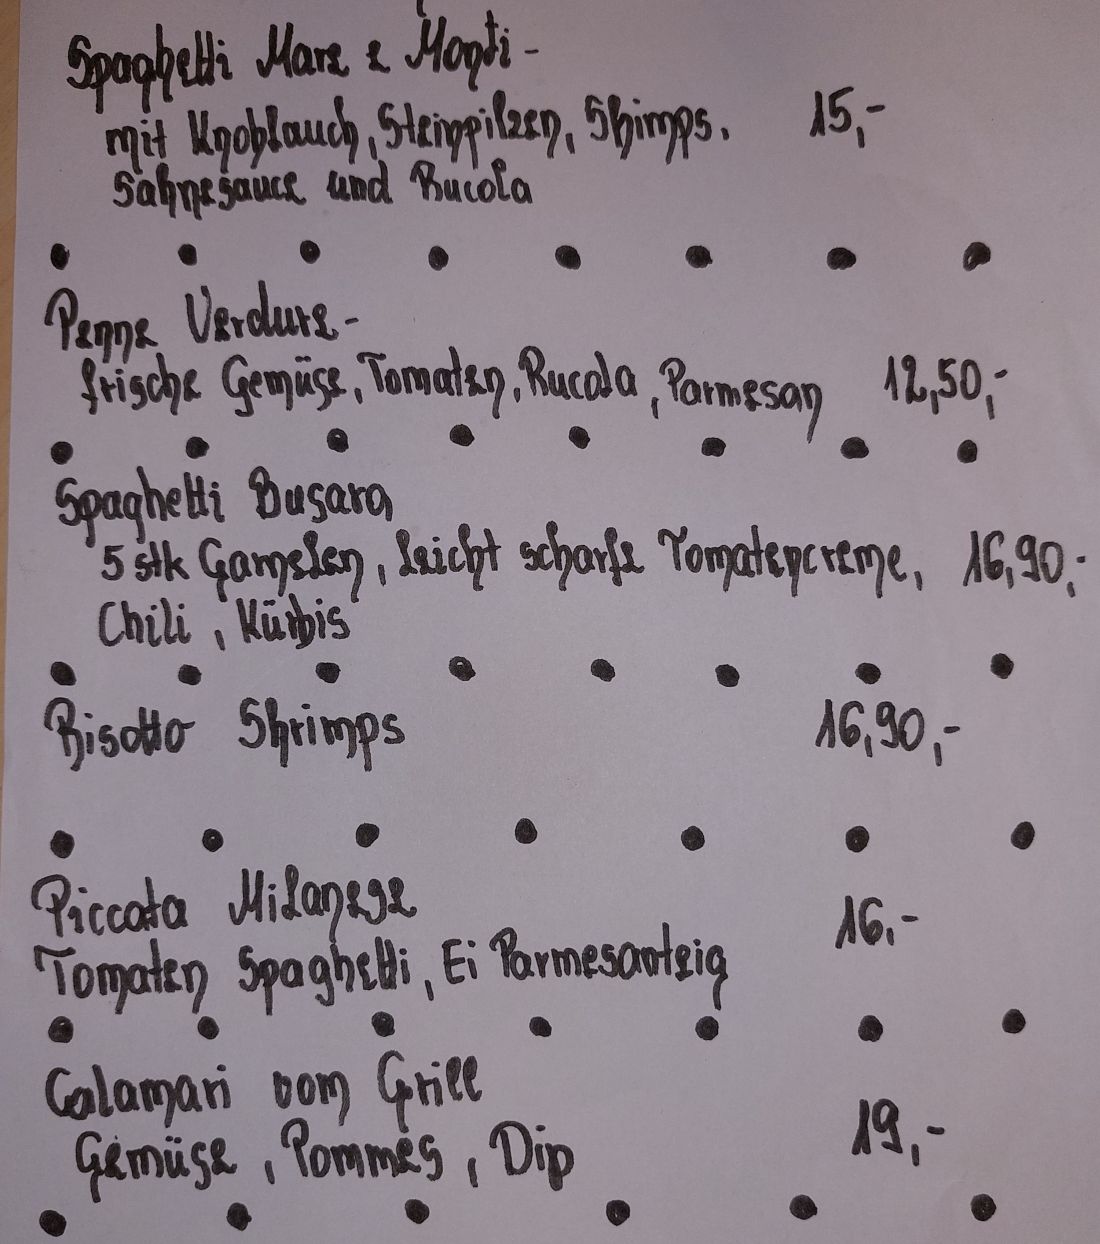 Spaghetti Mare e Monti -
mit Knoblauch, Steinpilzen, Shimps. 15,-
Sahnesauce und Rucola
Penne Verdure -
frische Gemüse, Tomaten, Rucola, Parmesan 12,50,-
Spaghetti Busara
5 stk Gamelen, leicht scharfe Tomatencreme, 16,90,-
Chili, Kürbis
Risotto Shrimps 16,90,-
Piccata Milanese
16,-
Tomaten Spaghetti, Ei Parmesanteig
Calamari vom Grill
19,-
Gemüse, Pommes, Dip